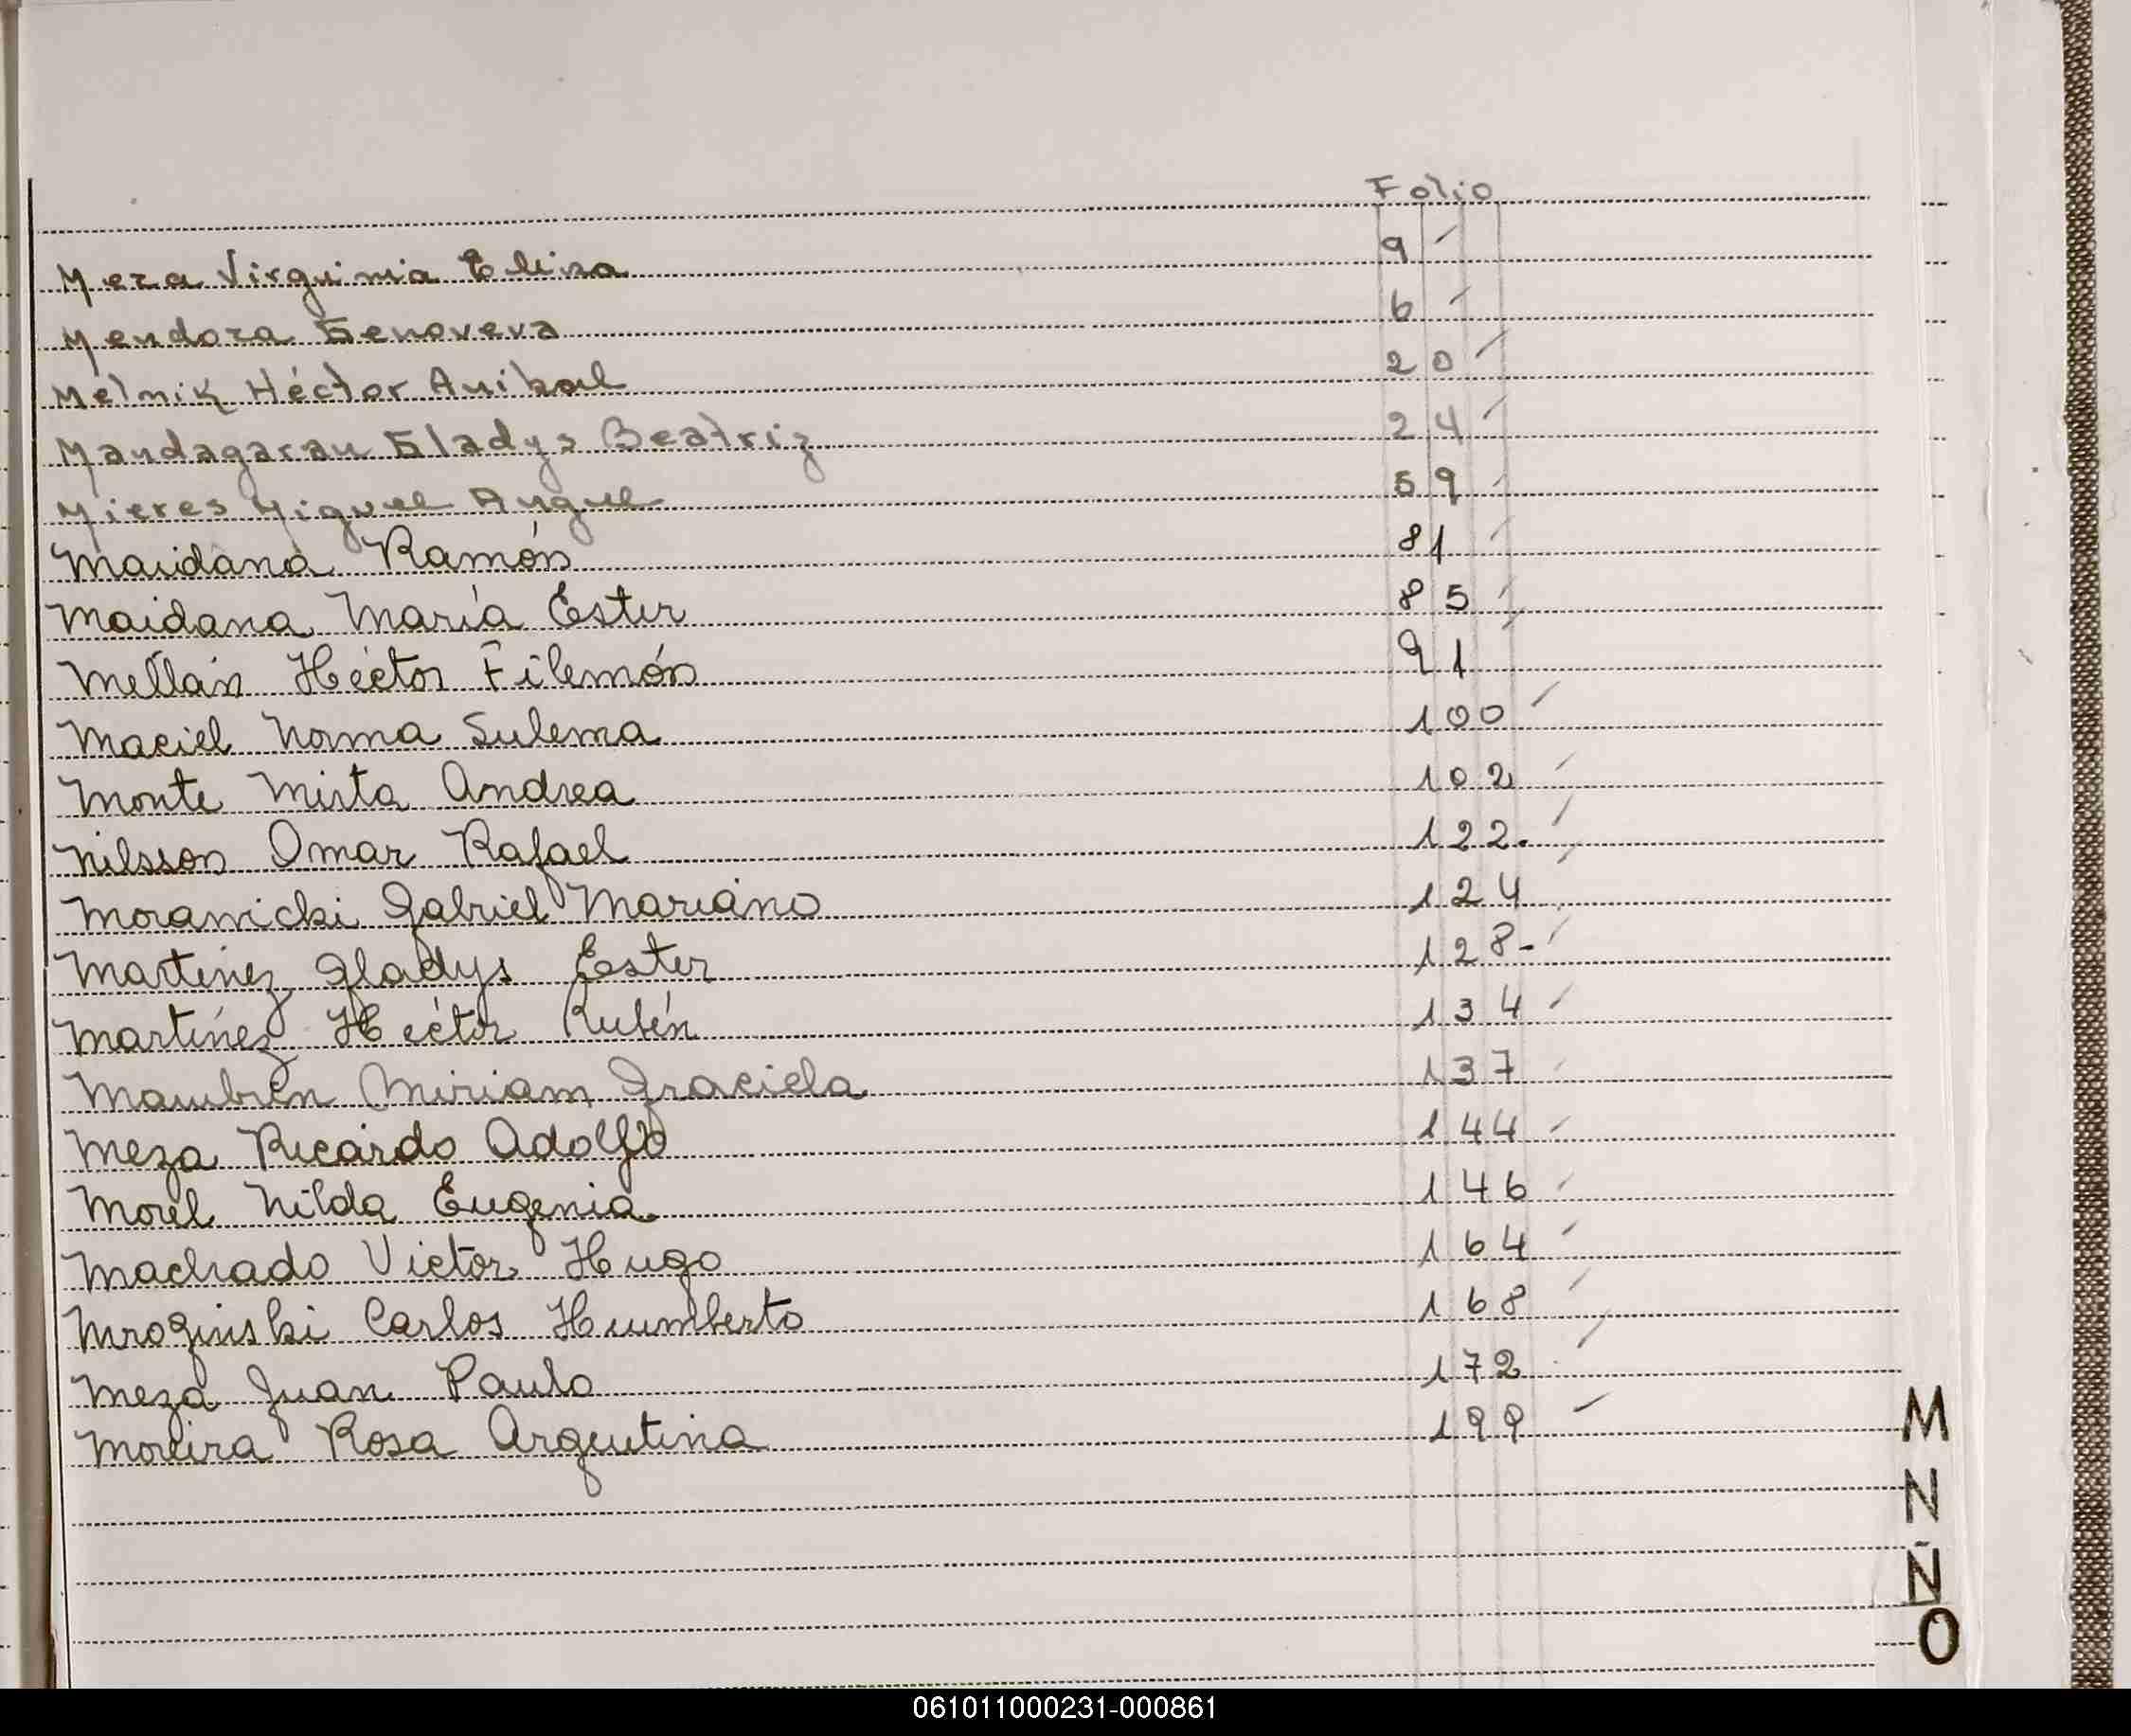 Folio
Meza Virguinia Elisa 9
Mendoza Genoveva 6
Melnik Héctor Anibal 20
Mandagaran Gladys Beatriz 24
Mieres Miguel Angel 59
Maidana Ramón 81
Maidana María Ester 85
Mellán Héctor Filemón 91
Maciel Norma Sulema 100
Monte Mirta Andrea 102
Nilsson Omar Rafael 122.
Morawicki Gabriel Mariano 124
Martínez Gladys Ester 128-
Martínez Héctor Rubén 134
Miriam Graciela 137
Meza Ricardo Adolfo 144
Morel Nilda Eugenia 146
Machado Victor Hugo 164
Mroginski Carlos Humberto 168
Meza Juan Paulo 172
Moreira Rosa Argentina 199
M
N
Ñ
O
061011000231-000861